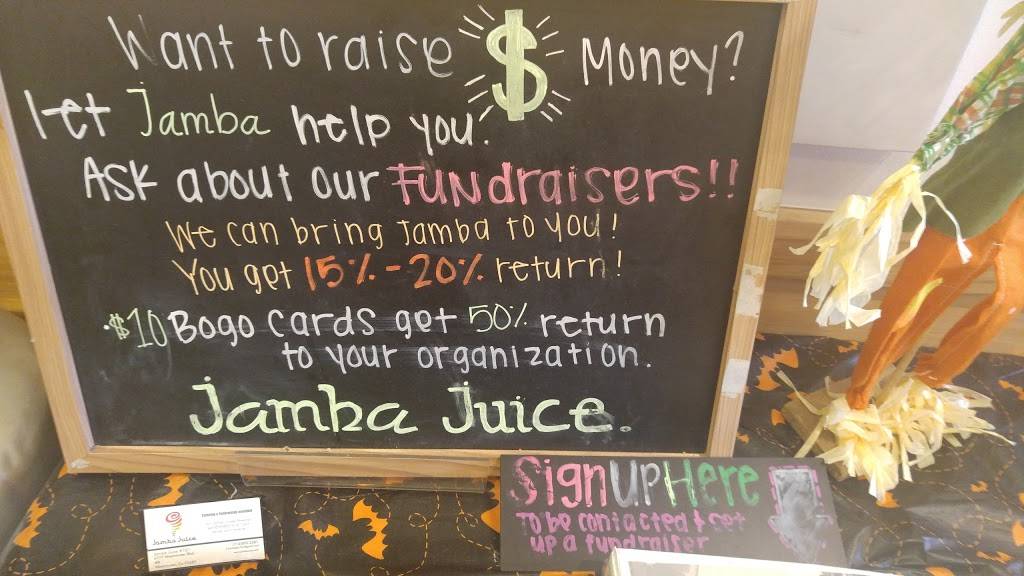 Want to raise $ Money?
let Jamba help you.
Ask about our Fundraisers!!
We can bring Jamba to you!
You get 15% - 20% return!
$10 Bogo Cards get 50% return
to your organization.
Jamba Juice.
Sign Up Here
To be contacted & set
up a fundraiser
Jamba Juice